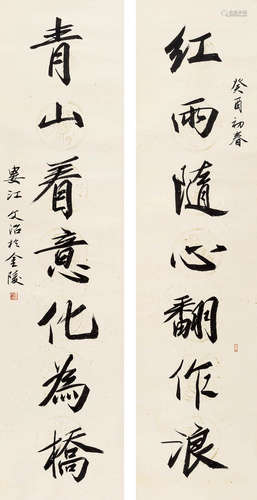 癸酉初春
红雨隨心翻作浪
青山看意化為橋
婁江文治於金陵